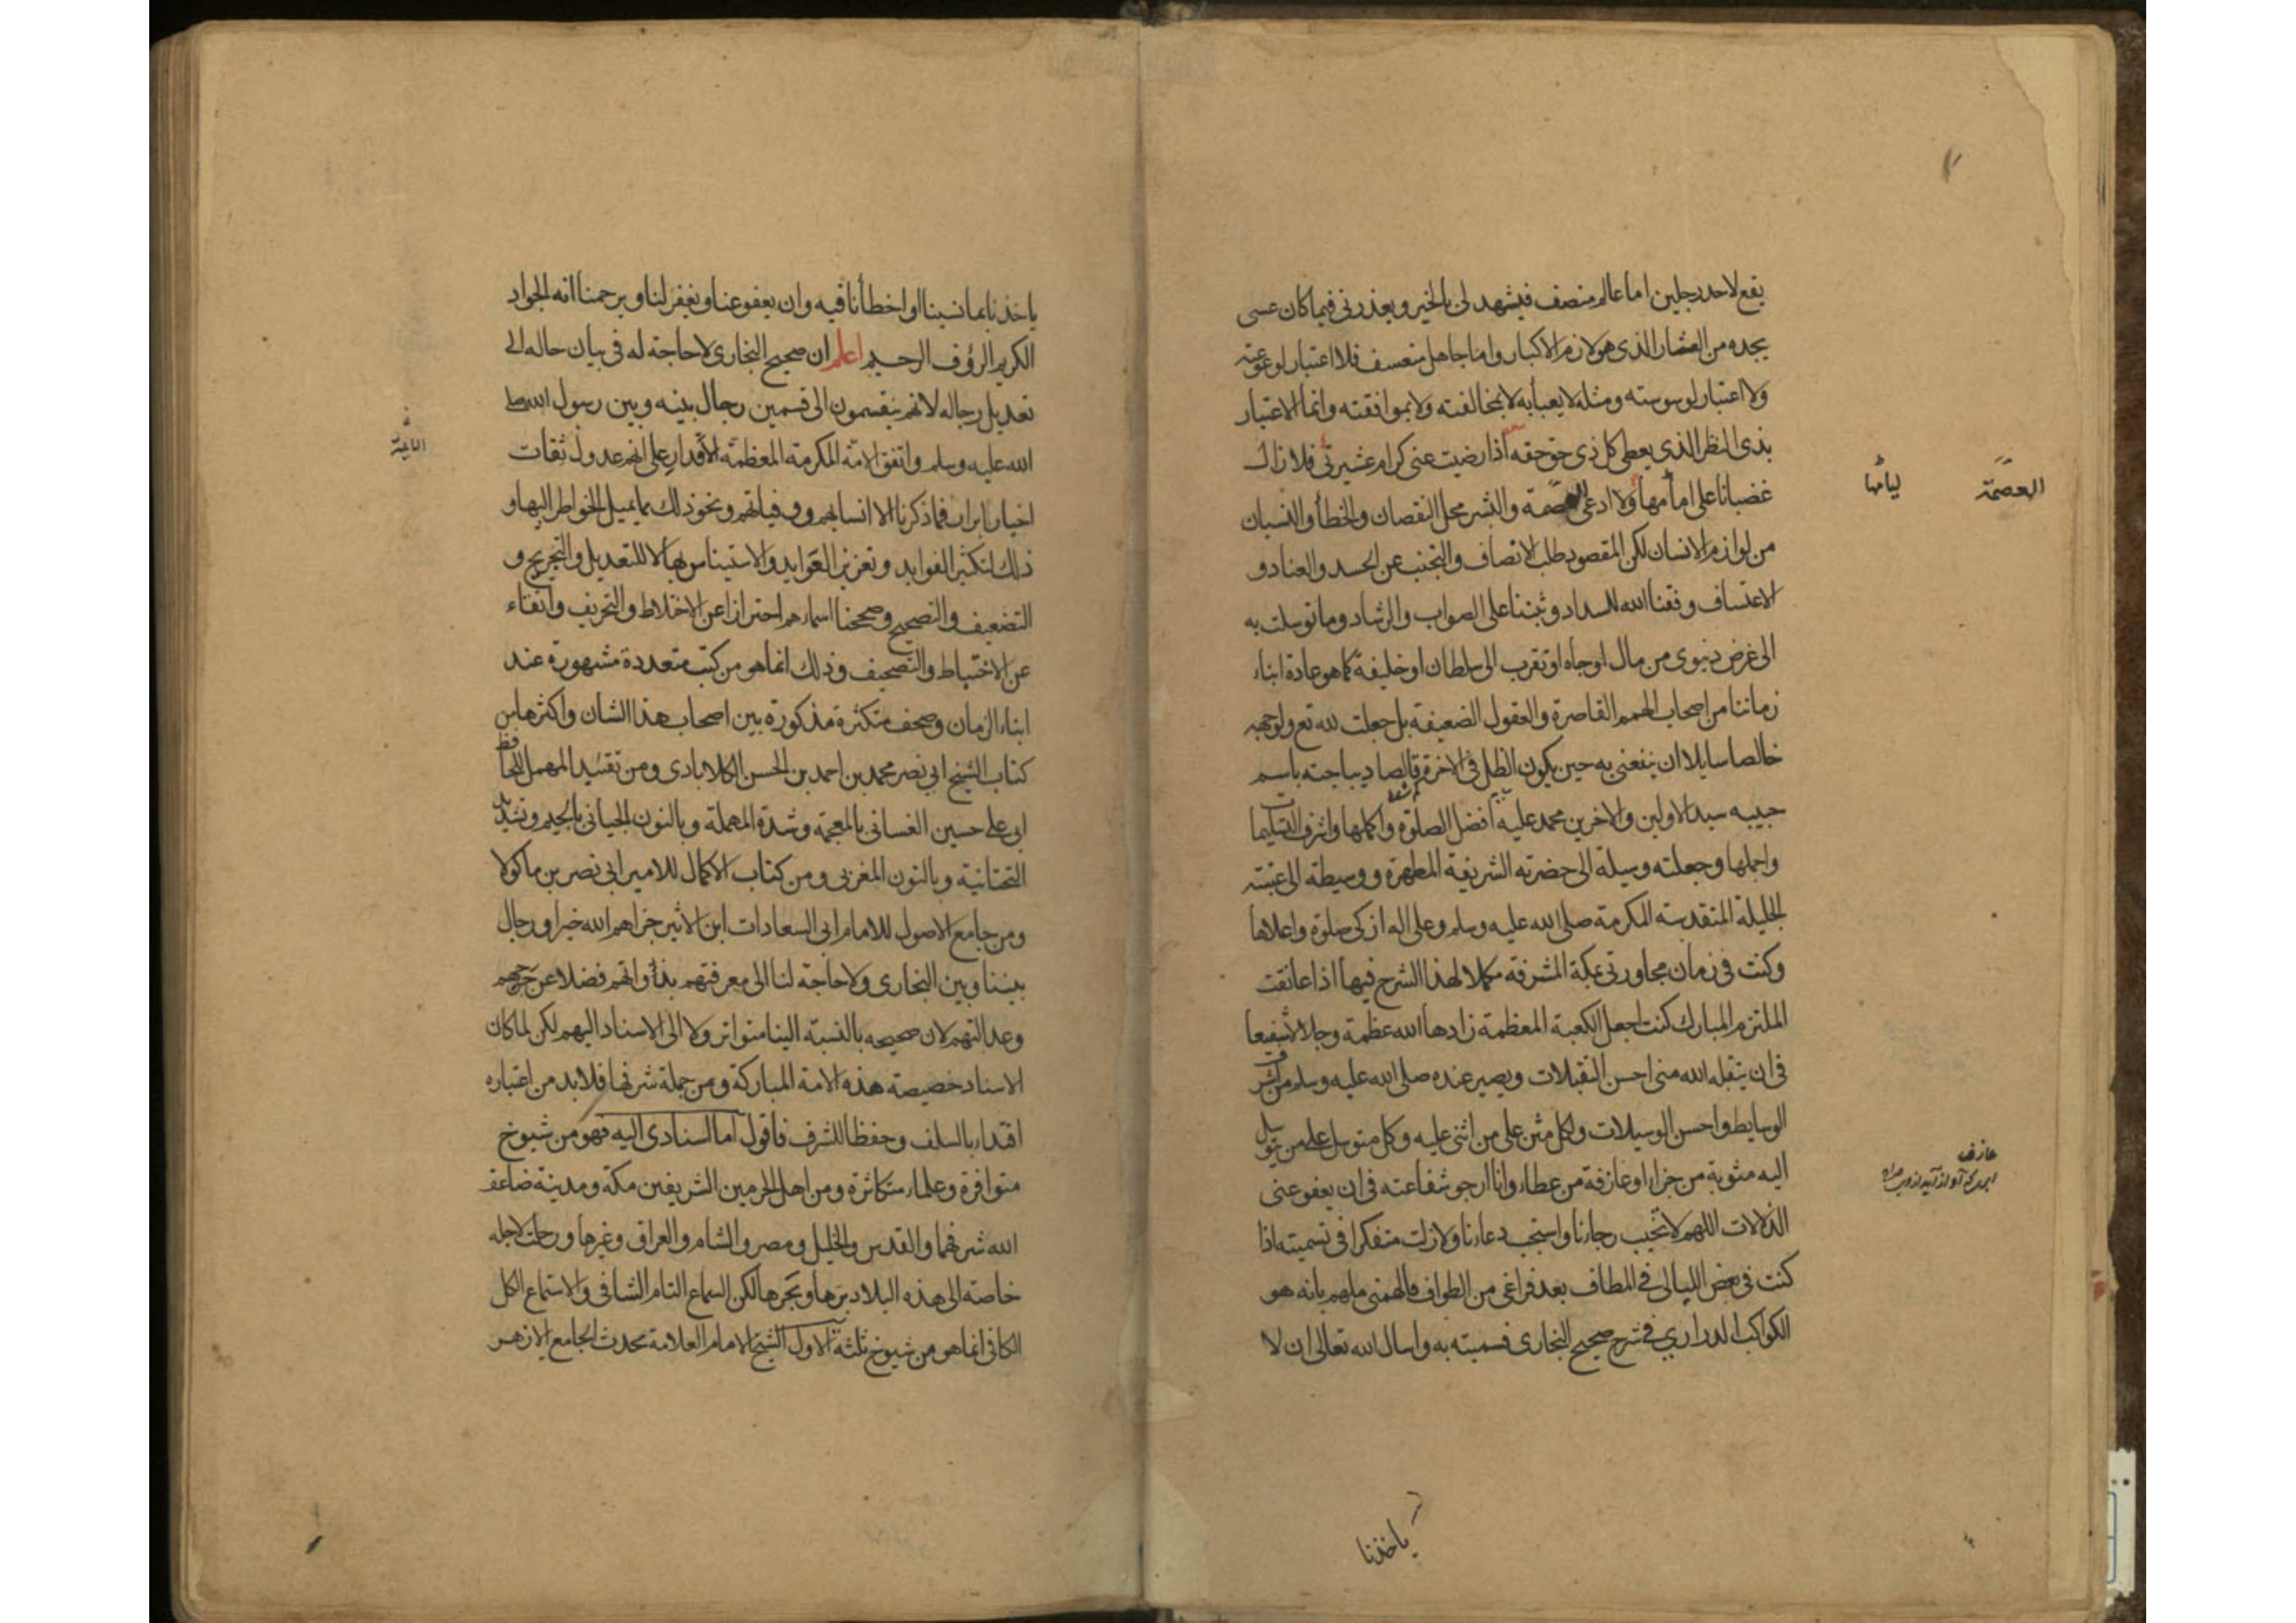 يقع لاحد رجلين اما عالم منصف فيشهد لى بالخير ويعذرنى فيما كان عسى
يجده من العثار الذى هو لازم الاكثار واما جاهل متعسف فلا اعتبار لوعوعته
ولا اعتبار لوسوسته ومثله لا يعبأ به لا بمخالفته ولا بموافقته وانما الاعتبار
بذى النظر الذى يعطى كل ذى حق حقه اذا رضيت عنى كرام عشيرتى فلا زال
غضبانا على امامها ولا ادعى العصمة والبشر محل النقصان والخطأ والنسيان
من لوازم الانسان لكن المقصود طلب الانصاف والتجنب عن الحسد والعناد و
الاعتساف وفقنا الله للسداد وثبتنا على الصواب والرشاد وما توسلت به
الى غرض دنيوى من مال او جاه او تقرب الى سلطان او خليفة كما هو عادة ابناء
زماننا من اصحاب الهمم القاصرة والعقول الضعيفة بل جعلت لله تع ولوجهه
خالصا سايلا ان ينفعنى به حين يكون الظل فى الاخرة قالصا ديباجته باسم
حبيبه سيد الاولين والاخرين محمد عليه افضل الصلوة واكملها واشرف التسليمات
واجملها وجعلته وسيلة الى حضرته الشريفة المطهرة ووسيطة الى عتبته
الجليلة المتقدسة المكرمة صلى الله عليه وسلم وعلى اله ازكى صلوة واعلاها
وكنت فى زمان مجاورتى بمكة المشرفة مكملا لهذا الشرح فيها اذا عانقت
الملتزم المبارك كنت اجعل الكعبة المعظمة زادها الله عظمة وجلالا شفيعا
فى ان يتقبله الله منى احسن التقبلات ويصير عنده صلى الله عليه وسلم من اشرف
الوسايط واحسن الوسيلات ولكل مثن على من اثنى عليه وكل متوسل على من توسل
اليه مثوبة من جزاء او عازفة من عطاء وانا ارجو شفاعته فى ان يعفو عنى
الذلات اللهم لا تخيب رجاءنا واستجب دعاءنا ولا زلت متفكرا فى تسميته اذا
كنت فى بعض الليالى فى المطاف بعد فراغى من الطواف فالهمنى ملهم بانه هو
الكواكب الدرارى فى شرح صحيح البخارى فسميته به واسال الله تعالى ان لا
ياخذنا
العصمة
لياميا
عازف
ياخذنا بما نسينا او اخطأنا فيه وان يعفو عنا ويغفر لنا ويرحمنا انه الجواد
الكريم الرؤف الرحيم اعلم ان صحيح البخارى لا حاجة له فى بيان حاله الى
تعديل رجاله لانهم ينقسمون الى قسمين رجال بينه وبين رسول الله صلى
الله عليه وسلم واتفق الامة المكرمة المعظمة الاقدار على انهم عدول ثقات
اخيار ابرار فما ذكرنا الا انسابهم ووفياتهم ونحو ذلك مما يميل الخواطر اليها و
ذلك لتكثير الفوايد وتعزيز العوايد والاستيناس بها لا للتعديل والتجريح و
التضعيف والتصحيح وصححنا اسماءهم احترازا عن الاختلاط والتحريف واتقاء
عن الاختباط والتصحيف وذلك انما هو من كتب متعددة مشهورة عند
ابناء الزمان وصحف متكثرة مذكورة بين اصحاب هذا الشان واكثرها من
كتاب الشيخ ابى نصر محمد بن احمد بن الحسن الكلاباذى ومن تقييد المهمل للحافظ
ابى على حسين الغسانى بالمعجمة وشدة المهملة وبالنون الجيانى بالجيم وتشديد
التحتانية وبالنون المغربى ومن كتاب الاكمال للامير ابى نصر بن ماكولا
ومن جامع الاصول للامام ابى السعادات ابن الاثير جزاهم الله خيرا ورجال
بيننا وبين البخارى ولا حاجة لنا الى معرفتهم بذاواتهم فضلا عن جرحهم
وعدالتهم لان صحيحه بالنسبة الينا متواتر ولا الى الاسناد اليهم لكن لما كان
الاسناد خصيصة هذه الامة المباركة ومن جملة شرفها فلا بد من اعتباره
اقتداء بالسلف وحفظا للشرف فاقول اما اسنادى اليه فهو من شيوخ
متوافرة وعلماء متكاثرة ومن اهل الحرمين الشريفين مكة ومدينة ضاعف
الله شرفهما والقدس والخليل ومصر والشام والعراق وغيرها ورحلت لاجله
خاصة الى هذه البلاد برها وبحرها لكن السماع التام الشافى والاستماع الكل
الكافى انما هو من شيوخ ثلثة الاول الشيخ الامام العلامة محدث الجامع الازهر